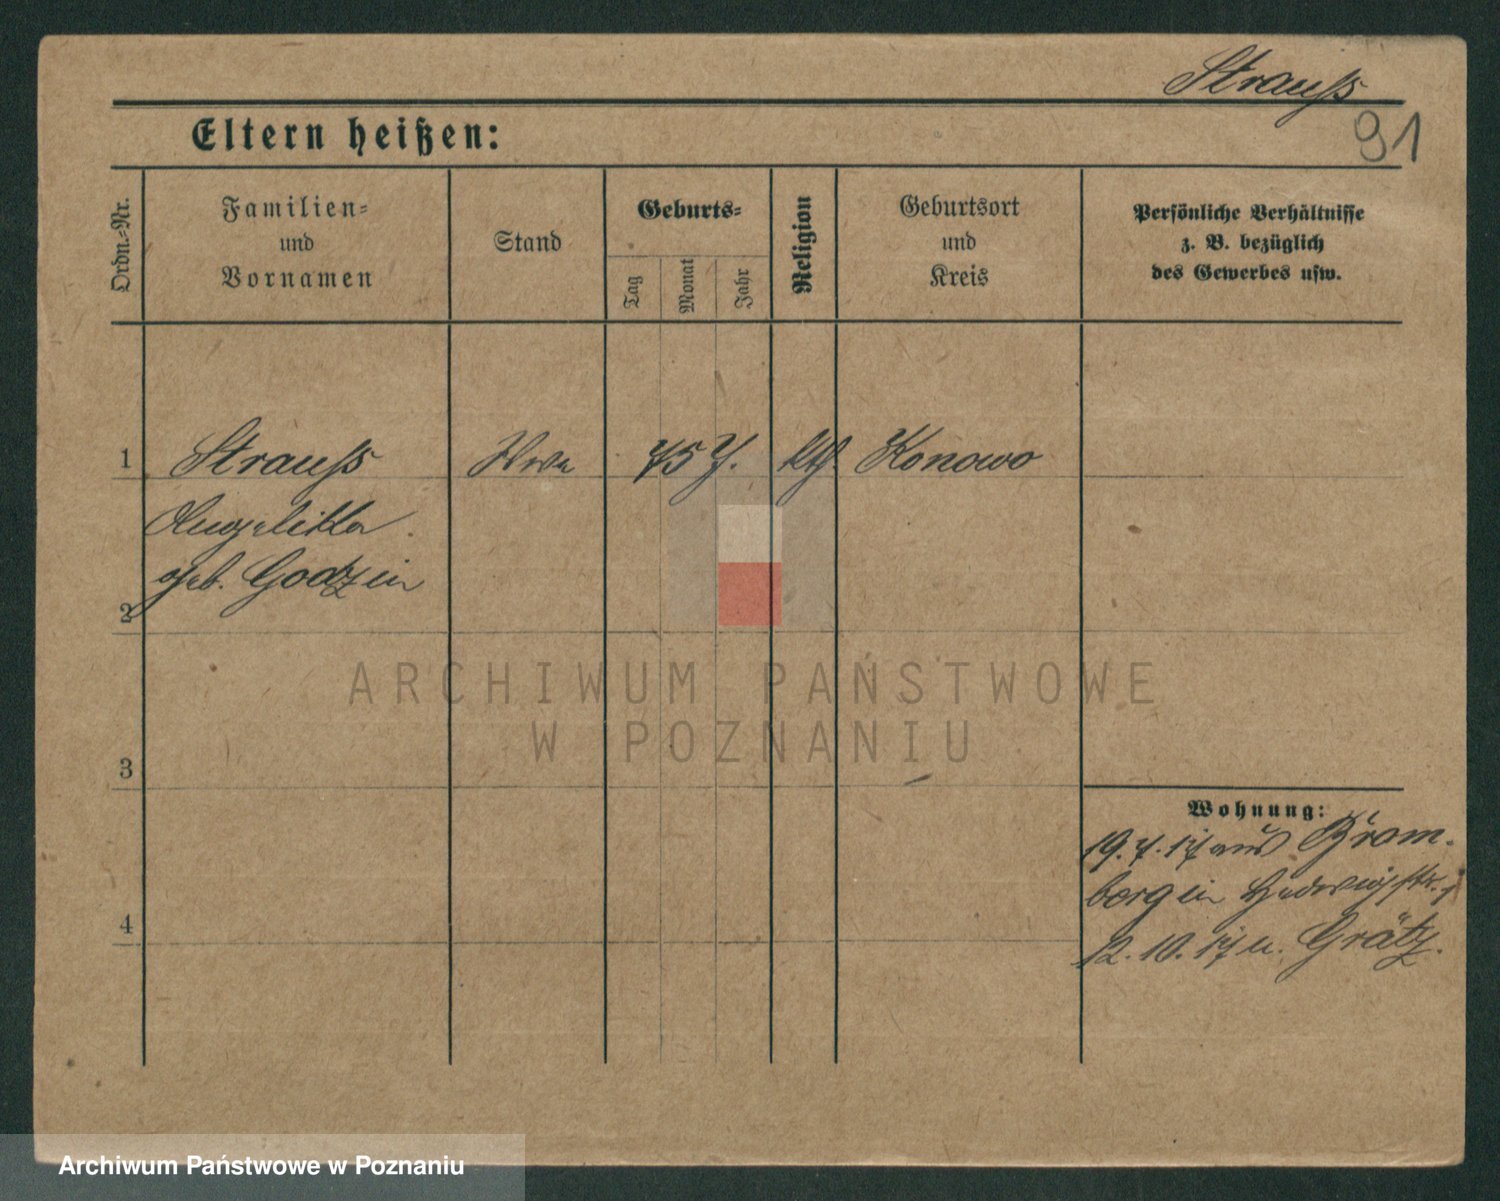 Strauß
91
Eltern heißen:
Ordn.-Nr.
Familien-
und
Vornamen
Stand
Geburts-
Tag
Monat
Jahr
Religion
Geburtsort
und
Kreis
Persönliche Verhältnisse
z. B. bezüglich
des Gewerbes usw.
1
Strauß
Wwe
75 J.
kth.
Konowo
Angelika
geb. Godzin
2
ARCHIWUM PAŃSTWOWE
W POZNANIU
3
Wohnung:
19. 7. 17 aus Brom-
berg in Hedwigstr.
4
12. 10. 17 n. Grätz.
Archiwum Państwowe w Poznaniu